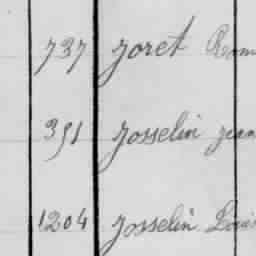 737 Joret Rom
391 Josselin Jean
1204 Josselin Louis